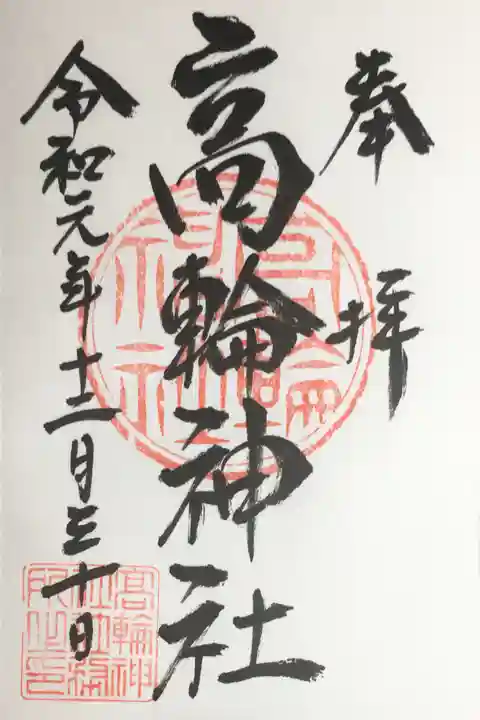 奉拝
高輪神社
令和元年十二月三十日
高輪神
社社務
所之印